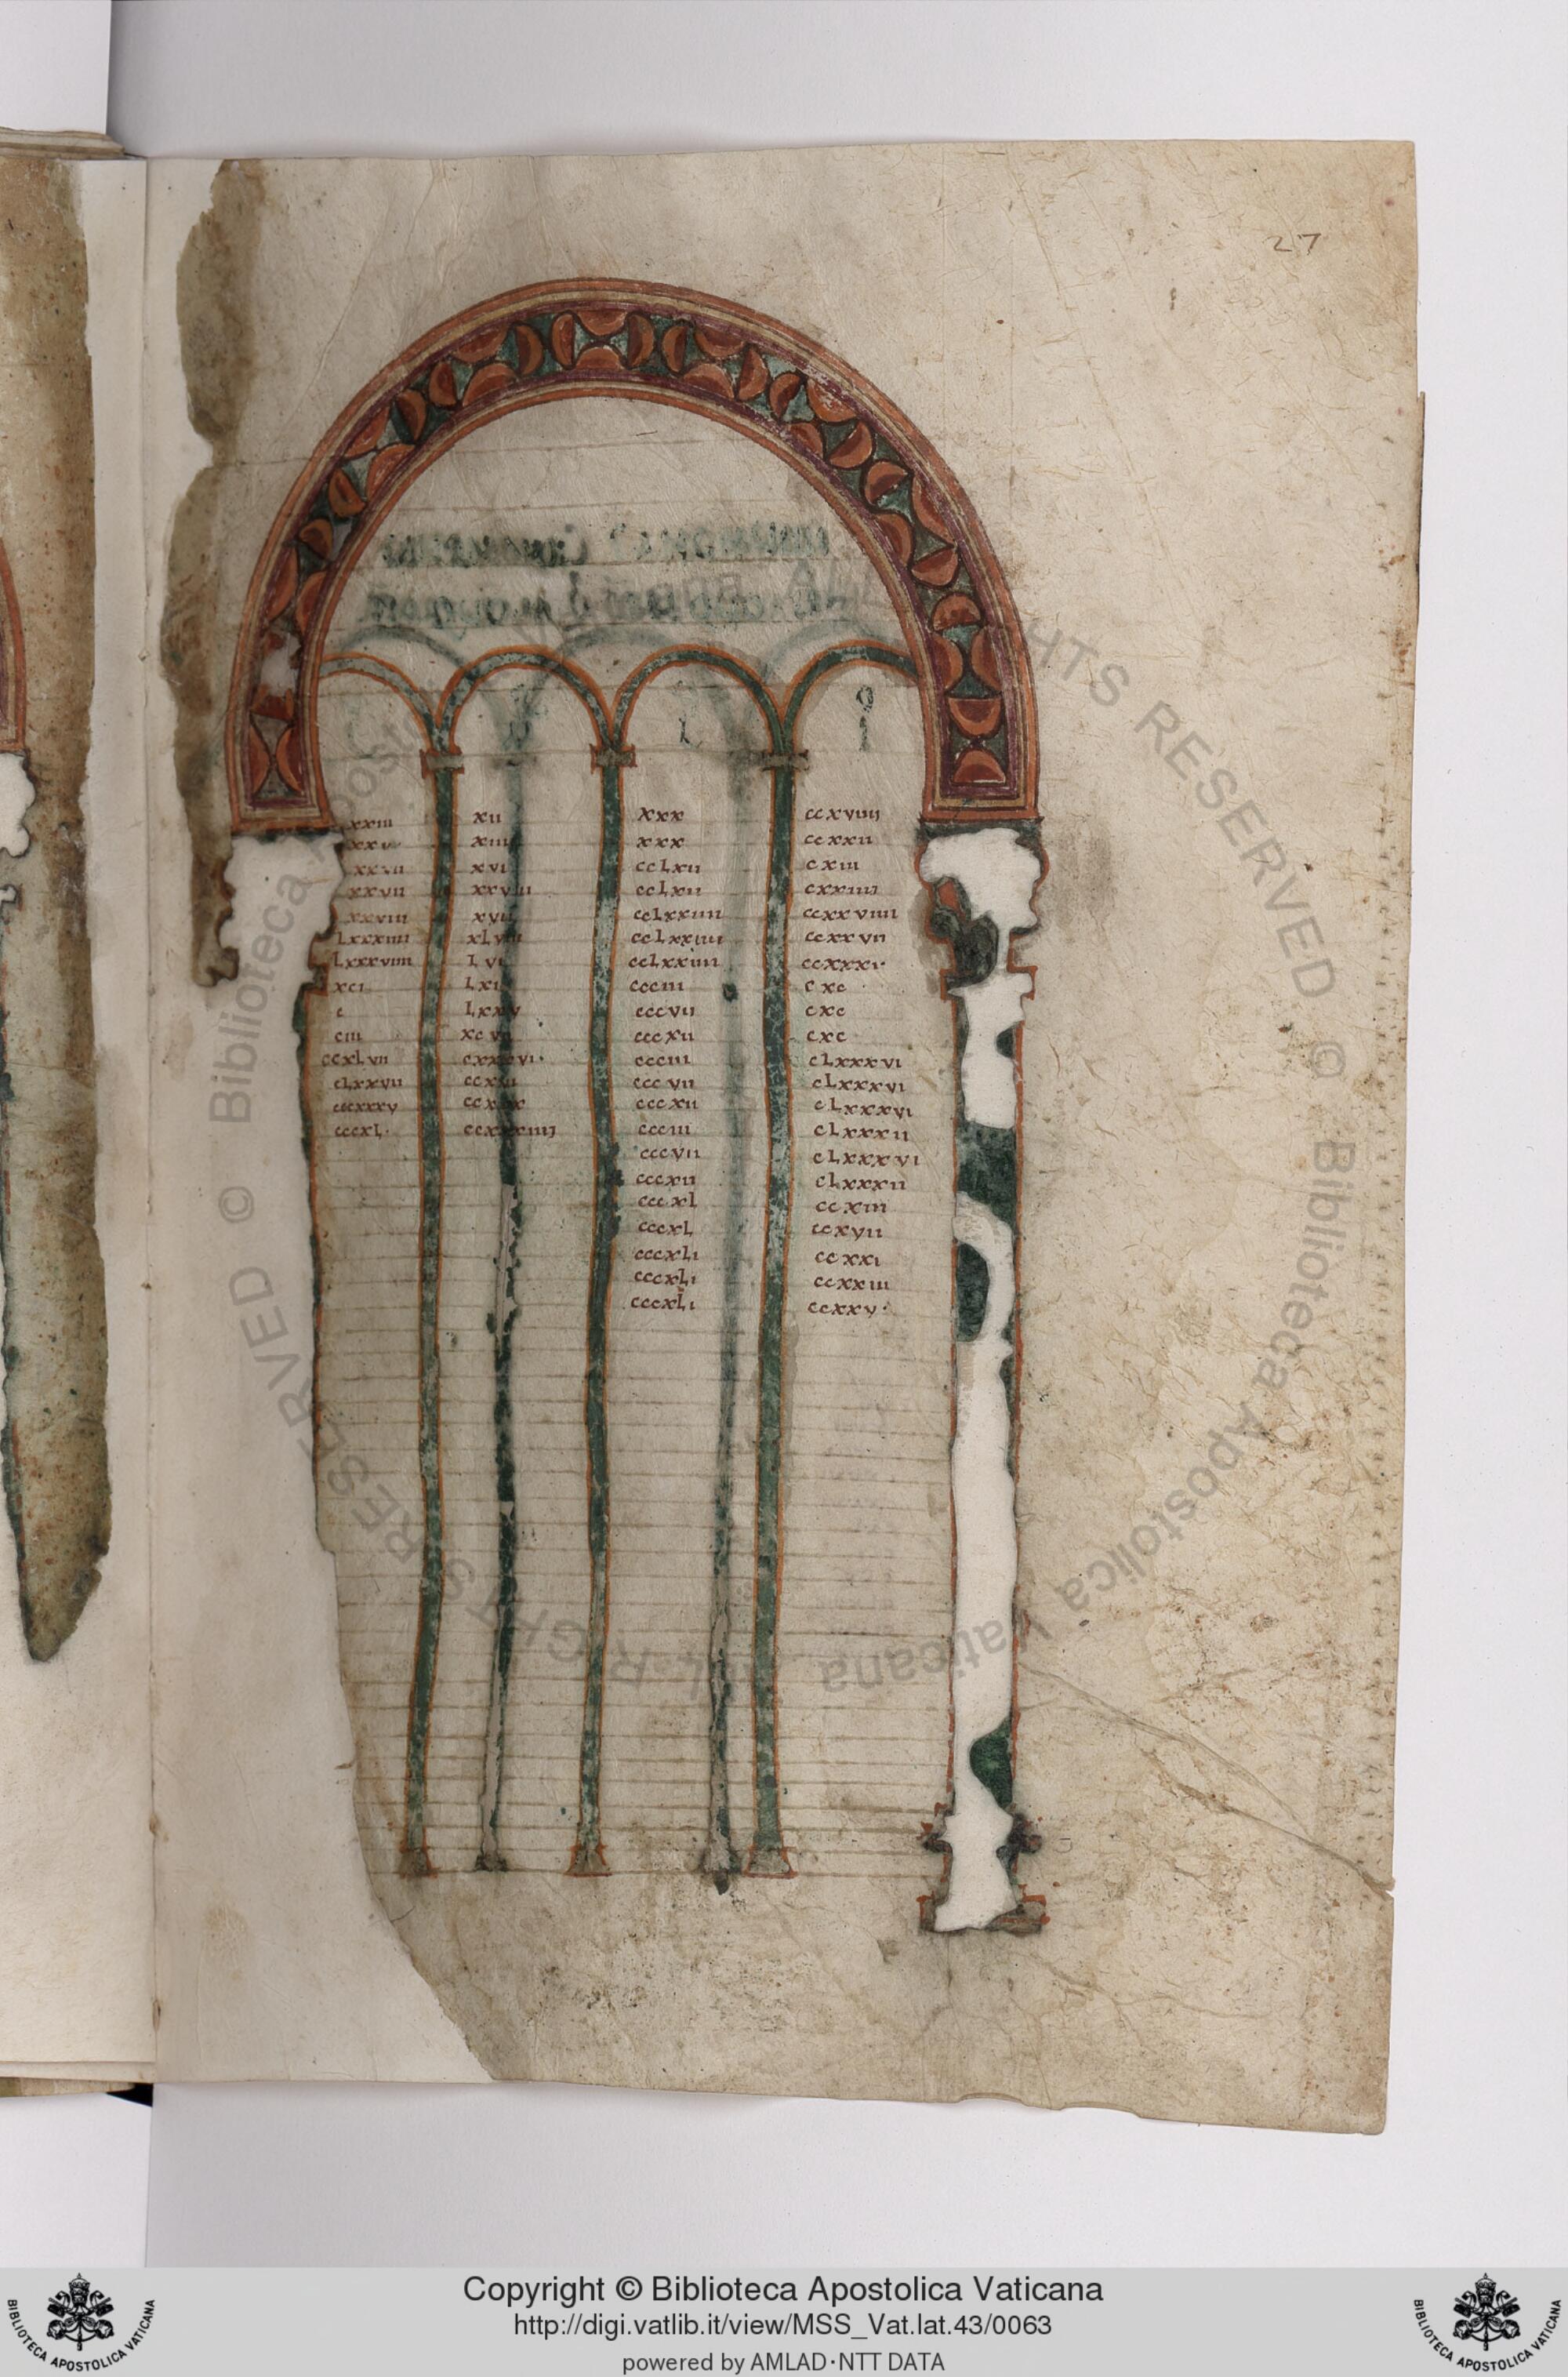 27
L I
xxiii xii xxx ccxviiii
xxv xiiii xxx ccxxii
xxvii xvi ccLxii cxiii
xxvii xxviii ccLxii cxxiiii
xxviii xvii ccLxxiiii ccxxviiii
Lxxxiiii xLviii ccLxxiiii ccxxvii
Lxxxviiii Lvi ccLxxiiii ccxxxi·
xci Lxi ccciii cxc
c Lxxv cccvii cxc
ciii xcvii cccxii cxc
ccxLvii cxxxvi· ccciii cLxxxvi
cLxxvii cccvii cLxxxvi
cccxxxv ccxxx cccxii cLxxxvi
cccxL· ccxxxiiii ccciii cLxxxii
cccvii cLxxxvi
cccxii cLxxxii
cccxL ccxiii
cccxL ccxvii
cccxLi ccxxi
cccxLi ccxxiii
cccxLi ccxxv·
© Biblioteca Apostolica Vaticana ALL RIGHTS RESERVED © Biblioteca Apostolica Vaticana ALL RIGHTS RESERVED
BIBLIOTECA APOSTOLICA VATICANA
Copyright © Biblioteca Apostolica Vaticana
http://digi.vatlib.it/view/MSS_Vat.lat.43/0063
powered by AMLAD·NTT DATA
BIBLIOTECA APOSTOLICA VATICANA